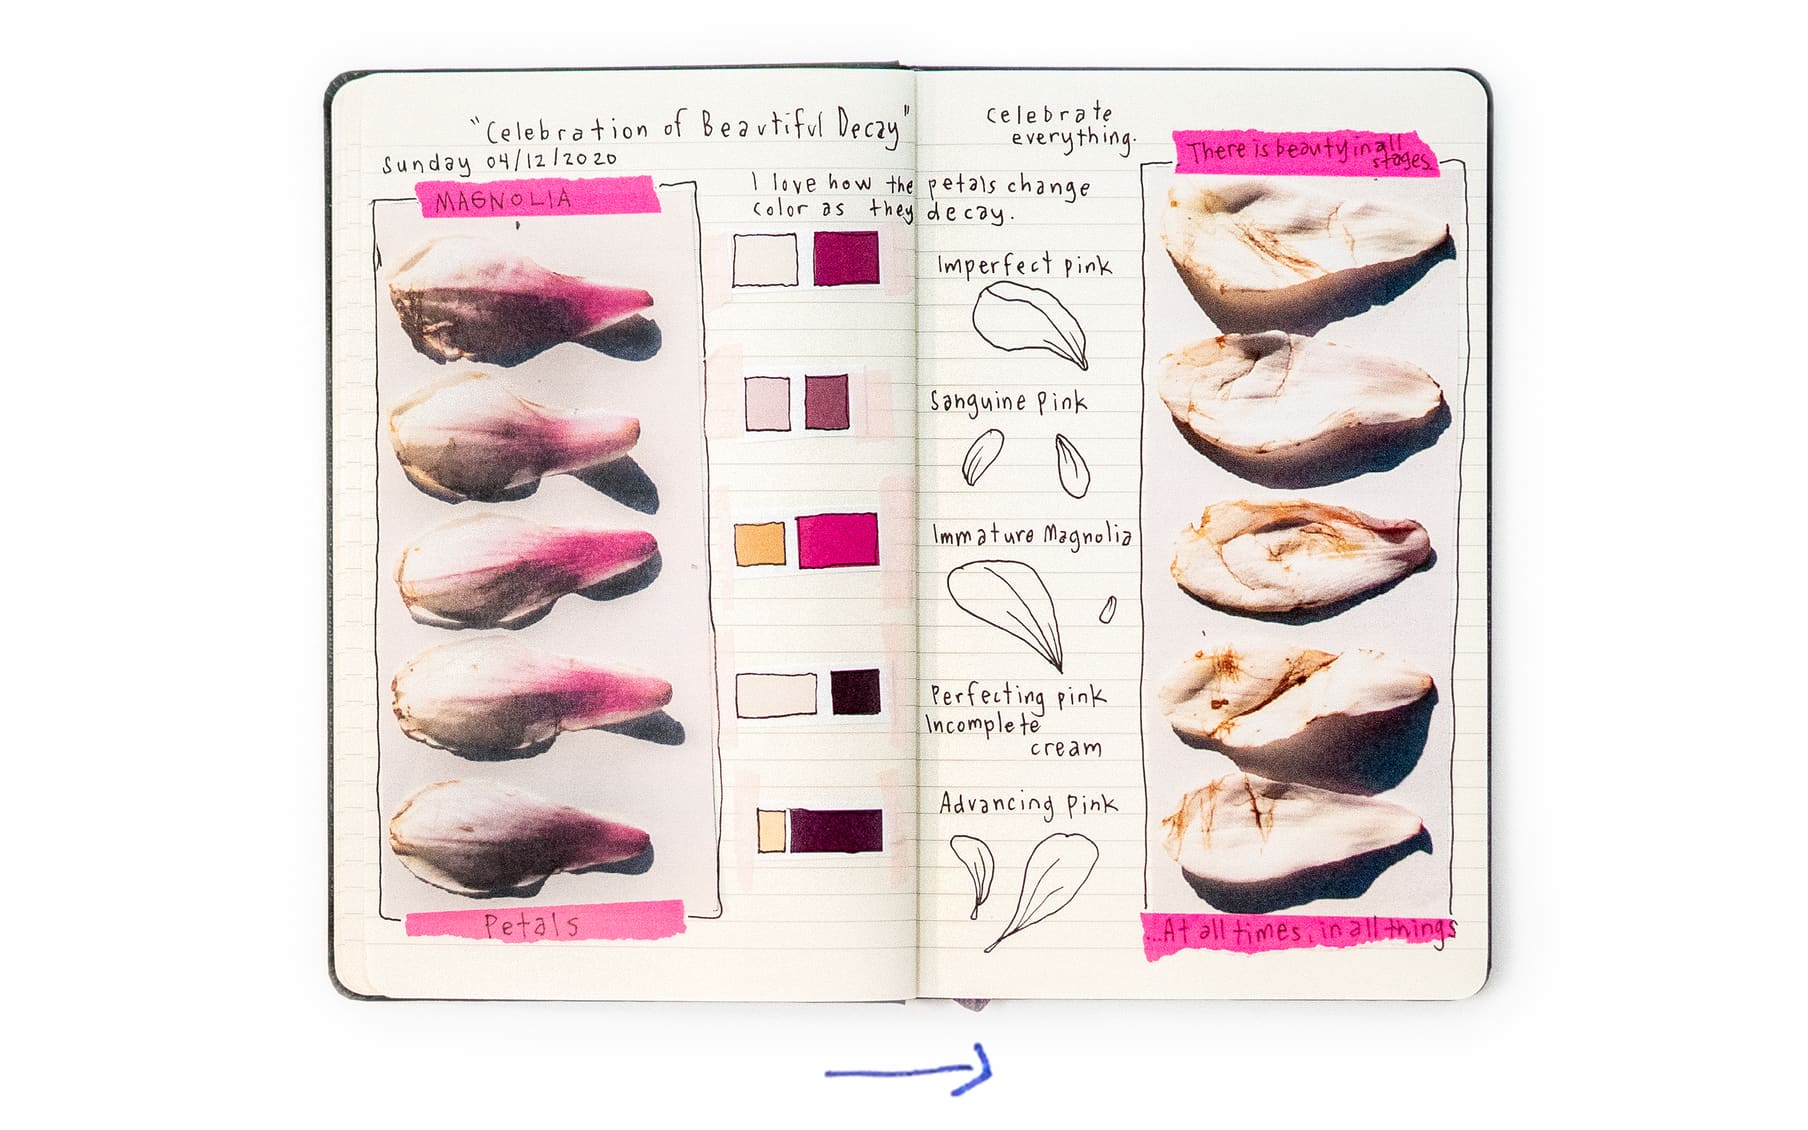 "Celebration of Beautiful Decay"
Sunday 04/12/2020
MAGNOLIA
Petals
celebrate
everything.
I love how the petals change
color as they decay.
Imperfect pink
Sanguine Pink
Immature Magnolia
Perfecting pink
Incomplete
cream
Advancing Pink
There is beauty in all
stages.
...At all times, in all things